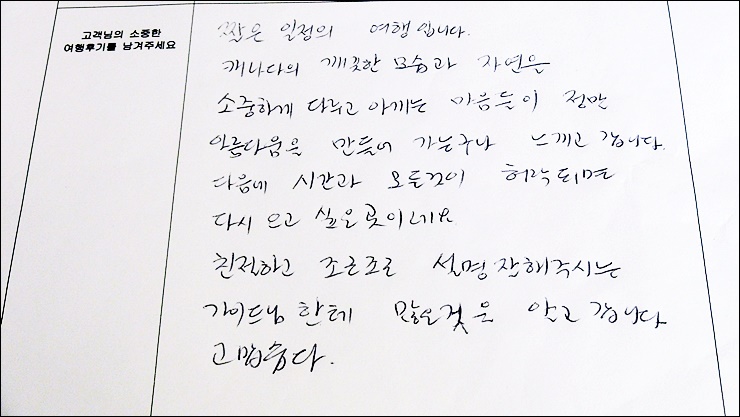 고객님의 소중한
여행후기를 남겨주세요
짧은 일정의 여행입니다.
캐나다의 깨끗한 모습과 자연을
소중하게 다루고 아끼는 마음들이 정말
아름다움을 만들어 가는구나 느끼고 갑니다.
다음에 시간과 모든것이 허락되면
다시 오고 싶은 곳이네요
친절하고 조근조근 설명 잘해주시는
가이드님 한테 많은것을 안고 갑니다
고맙습니다.